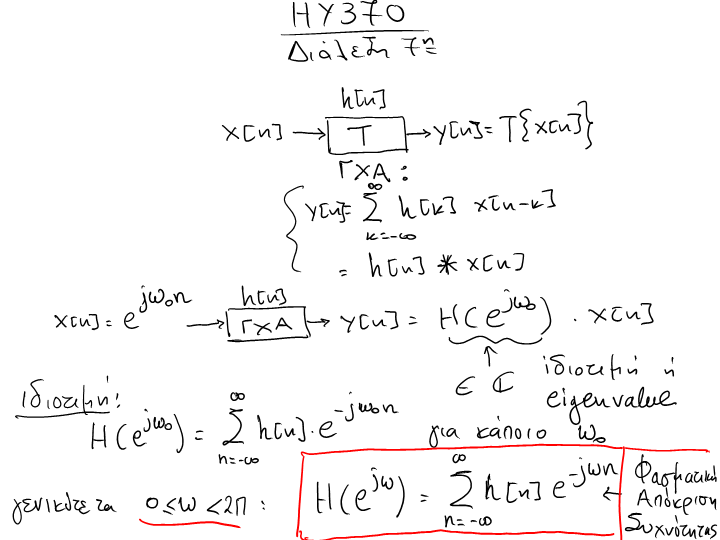 HY370
Διάλεξη 7η
h[n]
x[n] → T → y[n] = T{x[n]}
ΓΧΑ :
y[n] = ∑_{k=-∞}^{∞} h[k] x[n-k]
= h[n] * x[n]
x[n] = e^{jω₀n} → h[n] ΓΧΑ → y[n] = H(e^{jω₀}) · x[n]
↑
∈ ℂ ιδιοτιμή ή
eigenvalue
για κάποιο ω₀
ιδιοτιμή:
H(e^{jω₀}) = ∑_{n=-∞}^{∞} h[n] · e^{-jω₀n}
γενικότετα 0 ≤ ω < 2π : H(e^{jω}) = ∑_{n=-∞}^{∞} h[n] e^{-jωn} ← Φασματική
Απόκριση
Συχνότητας